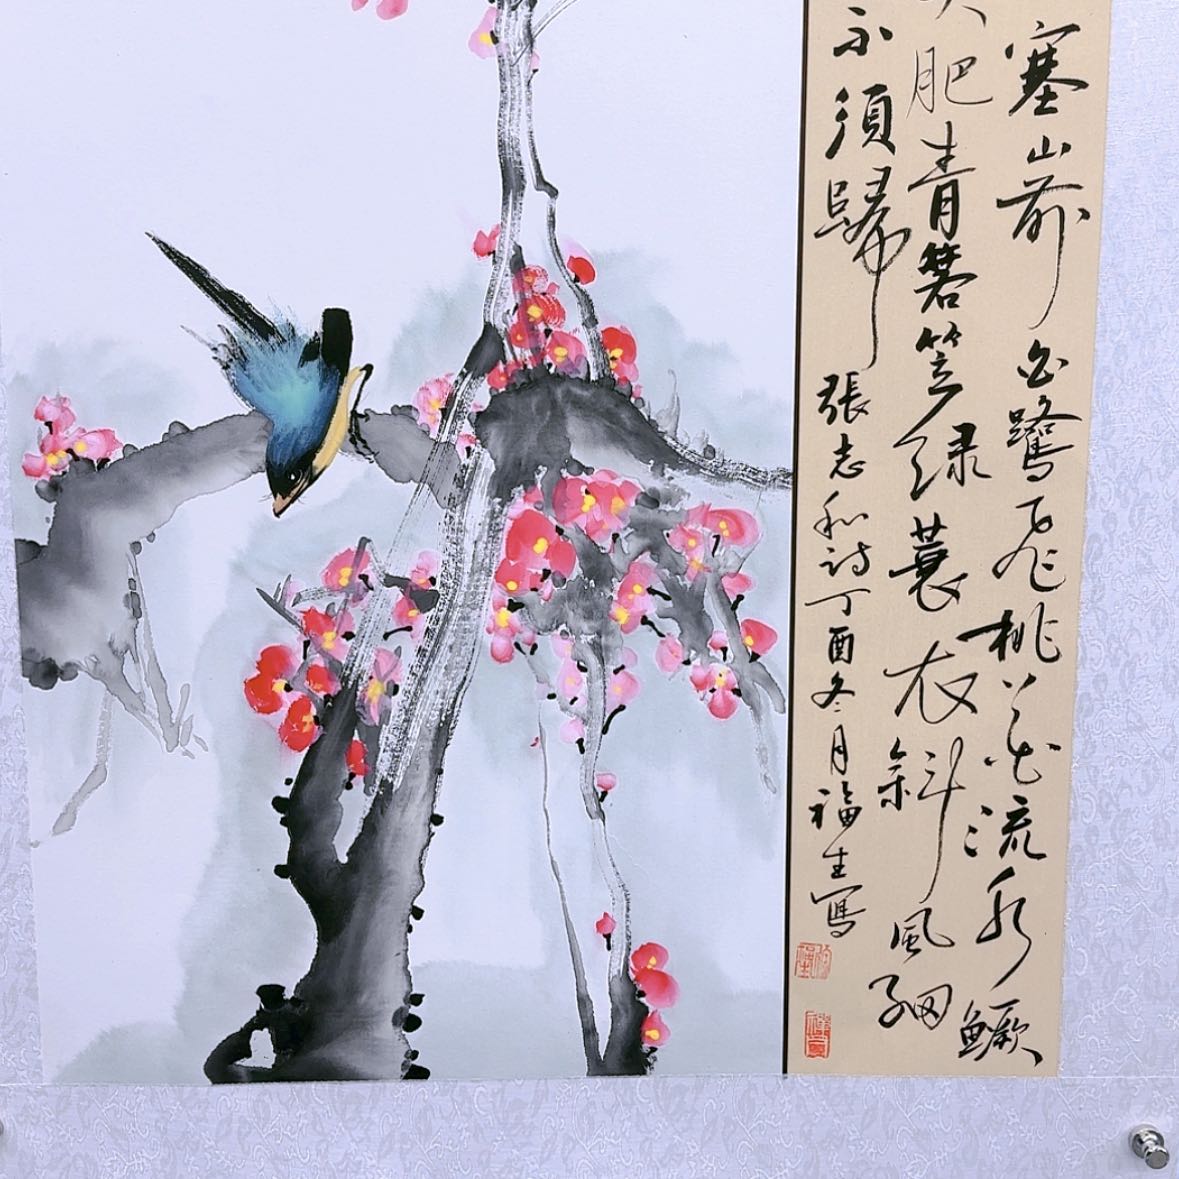 塞山前白鷺飛桃花流水鱖
肥青箬笠绿蓑衣斜風细
不須歸張志和詩丁酉冬月福生寫